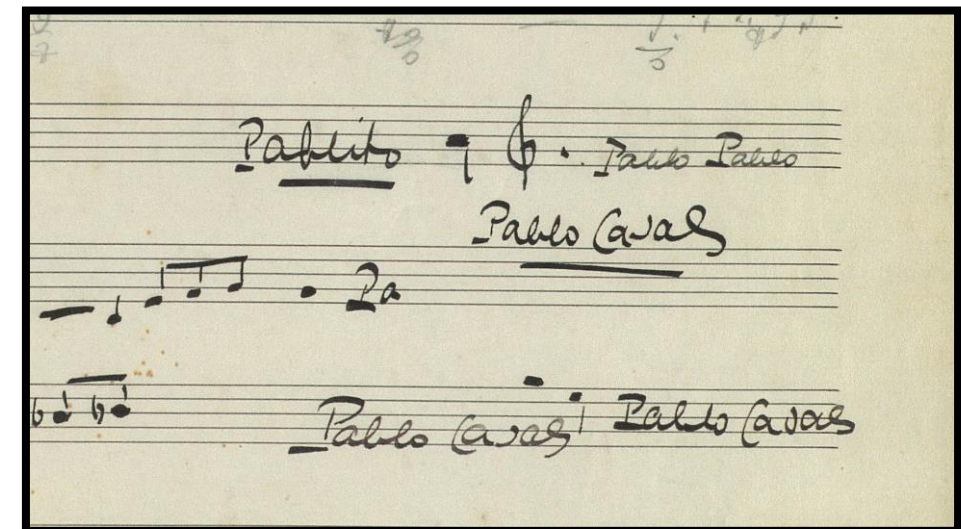 Pablito Pablo Pablo
Pablo Casals
Pa
Pablo Casals Pablo Casals